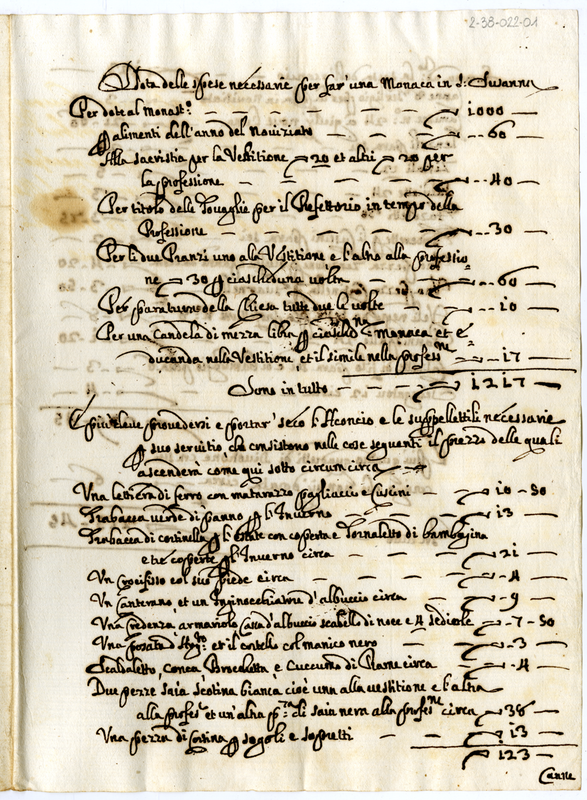 2-38-022-01
Nota delle spese necessarie per far' una Monaca in S. Susanna
Per dote al Monast:o — 1000
Per alimenti dell'anno del Nouiziato — 60
Alla sacristia per la Vestitione 20 et altri 20 per
la professione — 40
Per titolo delle Touaglie per il Refettorio in tempo della
Professione — 30
Per li due Pranzi uno alla Vestitione e l'altro alla professio
ne 30 p ciascheduna volta — 60
Per paratura della Chiesa tutte due le volte — 10
Per una Candela di mezza libra p ciasched:na Monaca et e
ducanda nella Vestitione et il simile nella profess:ne — 17
Sono in tutto — 1217
E piu deue prouedersi e portar' seco l'Aconcio e le suppellettili necessarie
p suo seruitio, che consistono nelle cose seguenti il prezzo delle quali
ascenderà come qui sotto circum circa
Una lettiera di ferro con matarazzo pagliaccio e Cuscini — 10-50
Trabacca uerde di panno p l'Inuerno — 13
Trabacca di cortinella p l'Estate con coperta e Tornaletto di bambagina
e tre coperte p l'Inuerno circa — 21
Un Crocifisso col suo piede circa — 4
Un Canterano, et un Inginocchiatore d'albuccio circa — 9
Una Credenza armariolo Cassa d'albuccio scabello di noce e 4 sediole — 7-50
Una posata d'Arg:to et il cortello col manico nero — 3
Scaldaletto, Conca Brocchetta e Cuccumo di Rame circa — 4
Due pezze saia scotina bianca cioè una alla uestitione e l'altra
alla profess:e et un'altra p:za di saia nera alla profess:ne circa — 38
Una pezza di cortina p sogoli e soppetti — 13
123
Canne